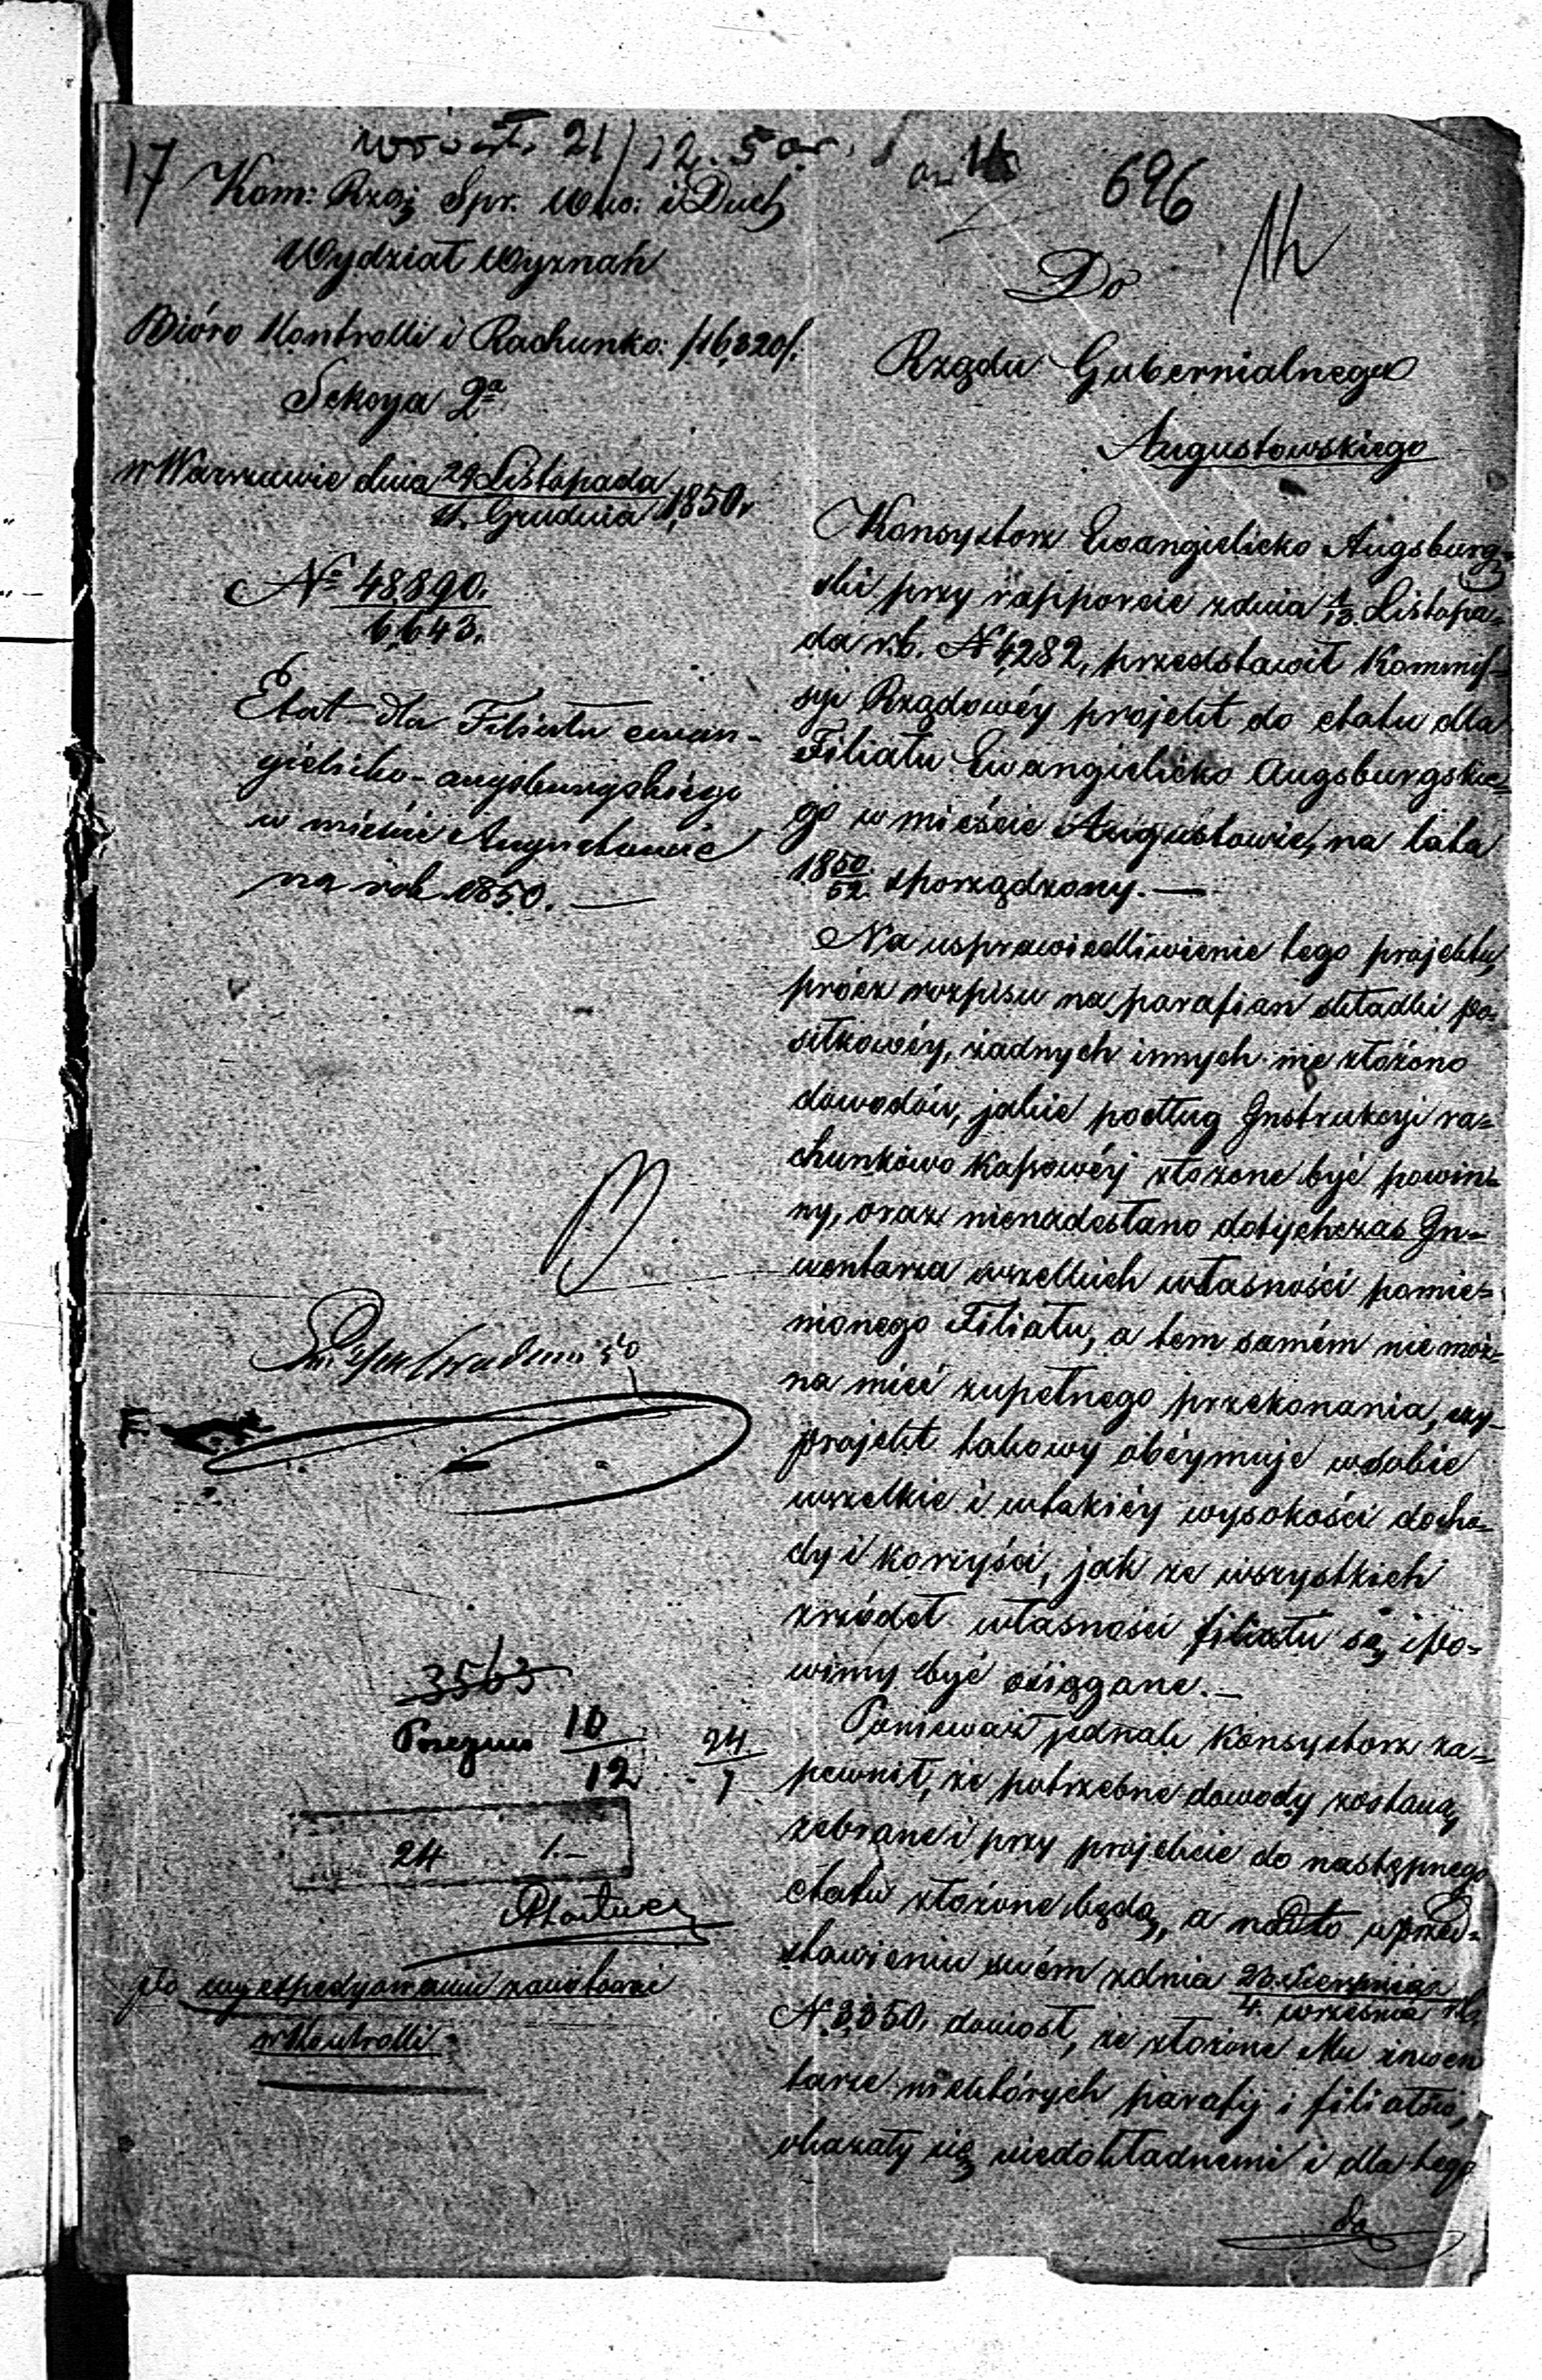 17
21/12. 50r.
696
Kom: Rząj Spr. Wew: i Duch
Wydział Wyznań
Bióro Kontrolli i Rachunko:
Sekcya 2a
w Warszawie dnia 29 Listopada
11. Grudnia 1850r
No 48890.
6,643.
Etat dla Filiału ewan-
gielicko-augsburgskiego
w mieście Augustowie
na rok 1850. —
3563
10
12
24
1
24 1.—
po wyexpedyowaniu
w Kontrolli
Do
Rządu Gubernialnego
Augustowskiego
Konsystorz Ewangielicko Augsburg=
ski przy rapporcie z dnia 1/13 Listopa=
da r.b. N 4282, przedstawił Kommis-
syi Rządowéy projekt do etatu dla
Filiału Ewangielicko Augsburgskie=
go w mieście Augustowie, na lata
1850/52. sporządzony. —
Na usprawiedliwienie tego projektu,
prócz rozpisu na parafian składki po=
siłkowéy, żadnych innych nie złożono
dowodów, jakie podług Instrukcyi ra=
chunkowo Kassowéy złożone być powin=
ny, oraz nienadesłano dotychczas In=
wentarza wszelkich własności pomie=
nionego Filiału, a tem samém nie moż=
na mieć zupełnego przekonania, czy
projekt takowy obéymuje w sobie
wszelkie i w takiéy wysokości docho=
dy i korzyści, jak ze wszystkich
źródeł własności filiału są, i po=
winny być osiągane. —
Ponieważ jednak Konsystorz za=
pewnił, że potrzebne dowody zostaną
zebrane i przy projekcie do następnego
etatu złożone będą, a nadto w przed=
stawieniu swém z dnia 23 Sierpnia
4. września r.b.
N. 3350. doniósł, że złożone Mu inwen
tarze niektórych parafij i filiałów,
okazały się niedokładnemi i dla tego
do